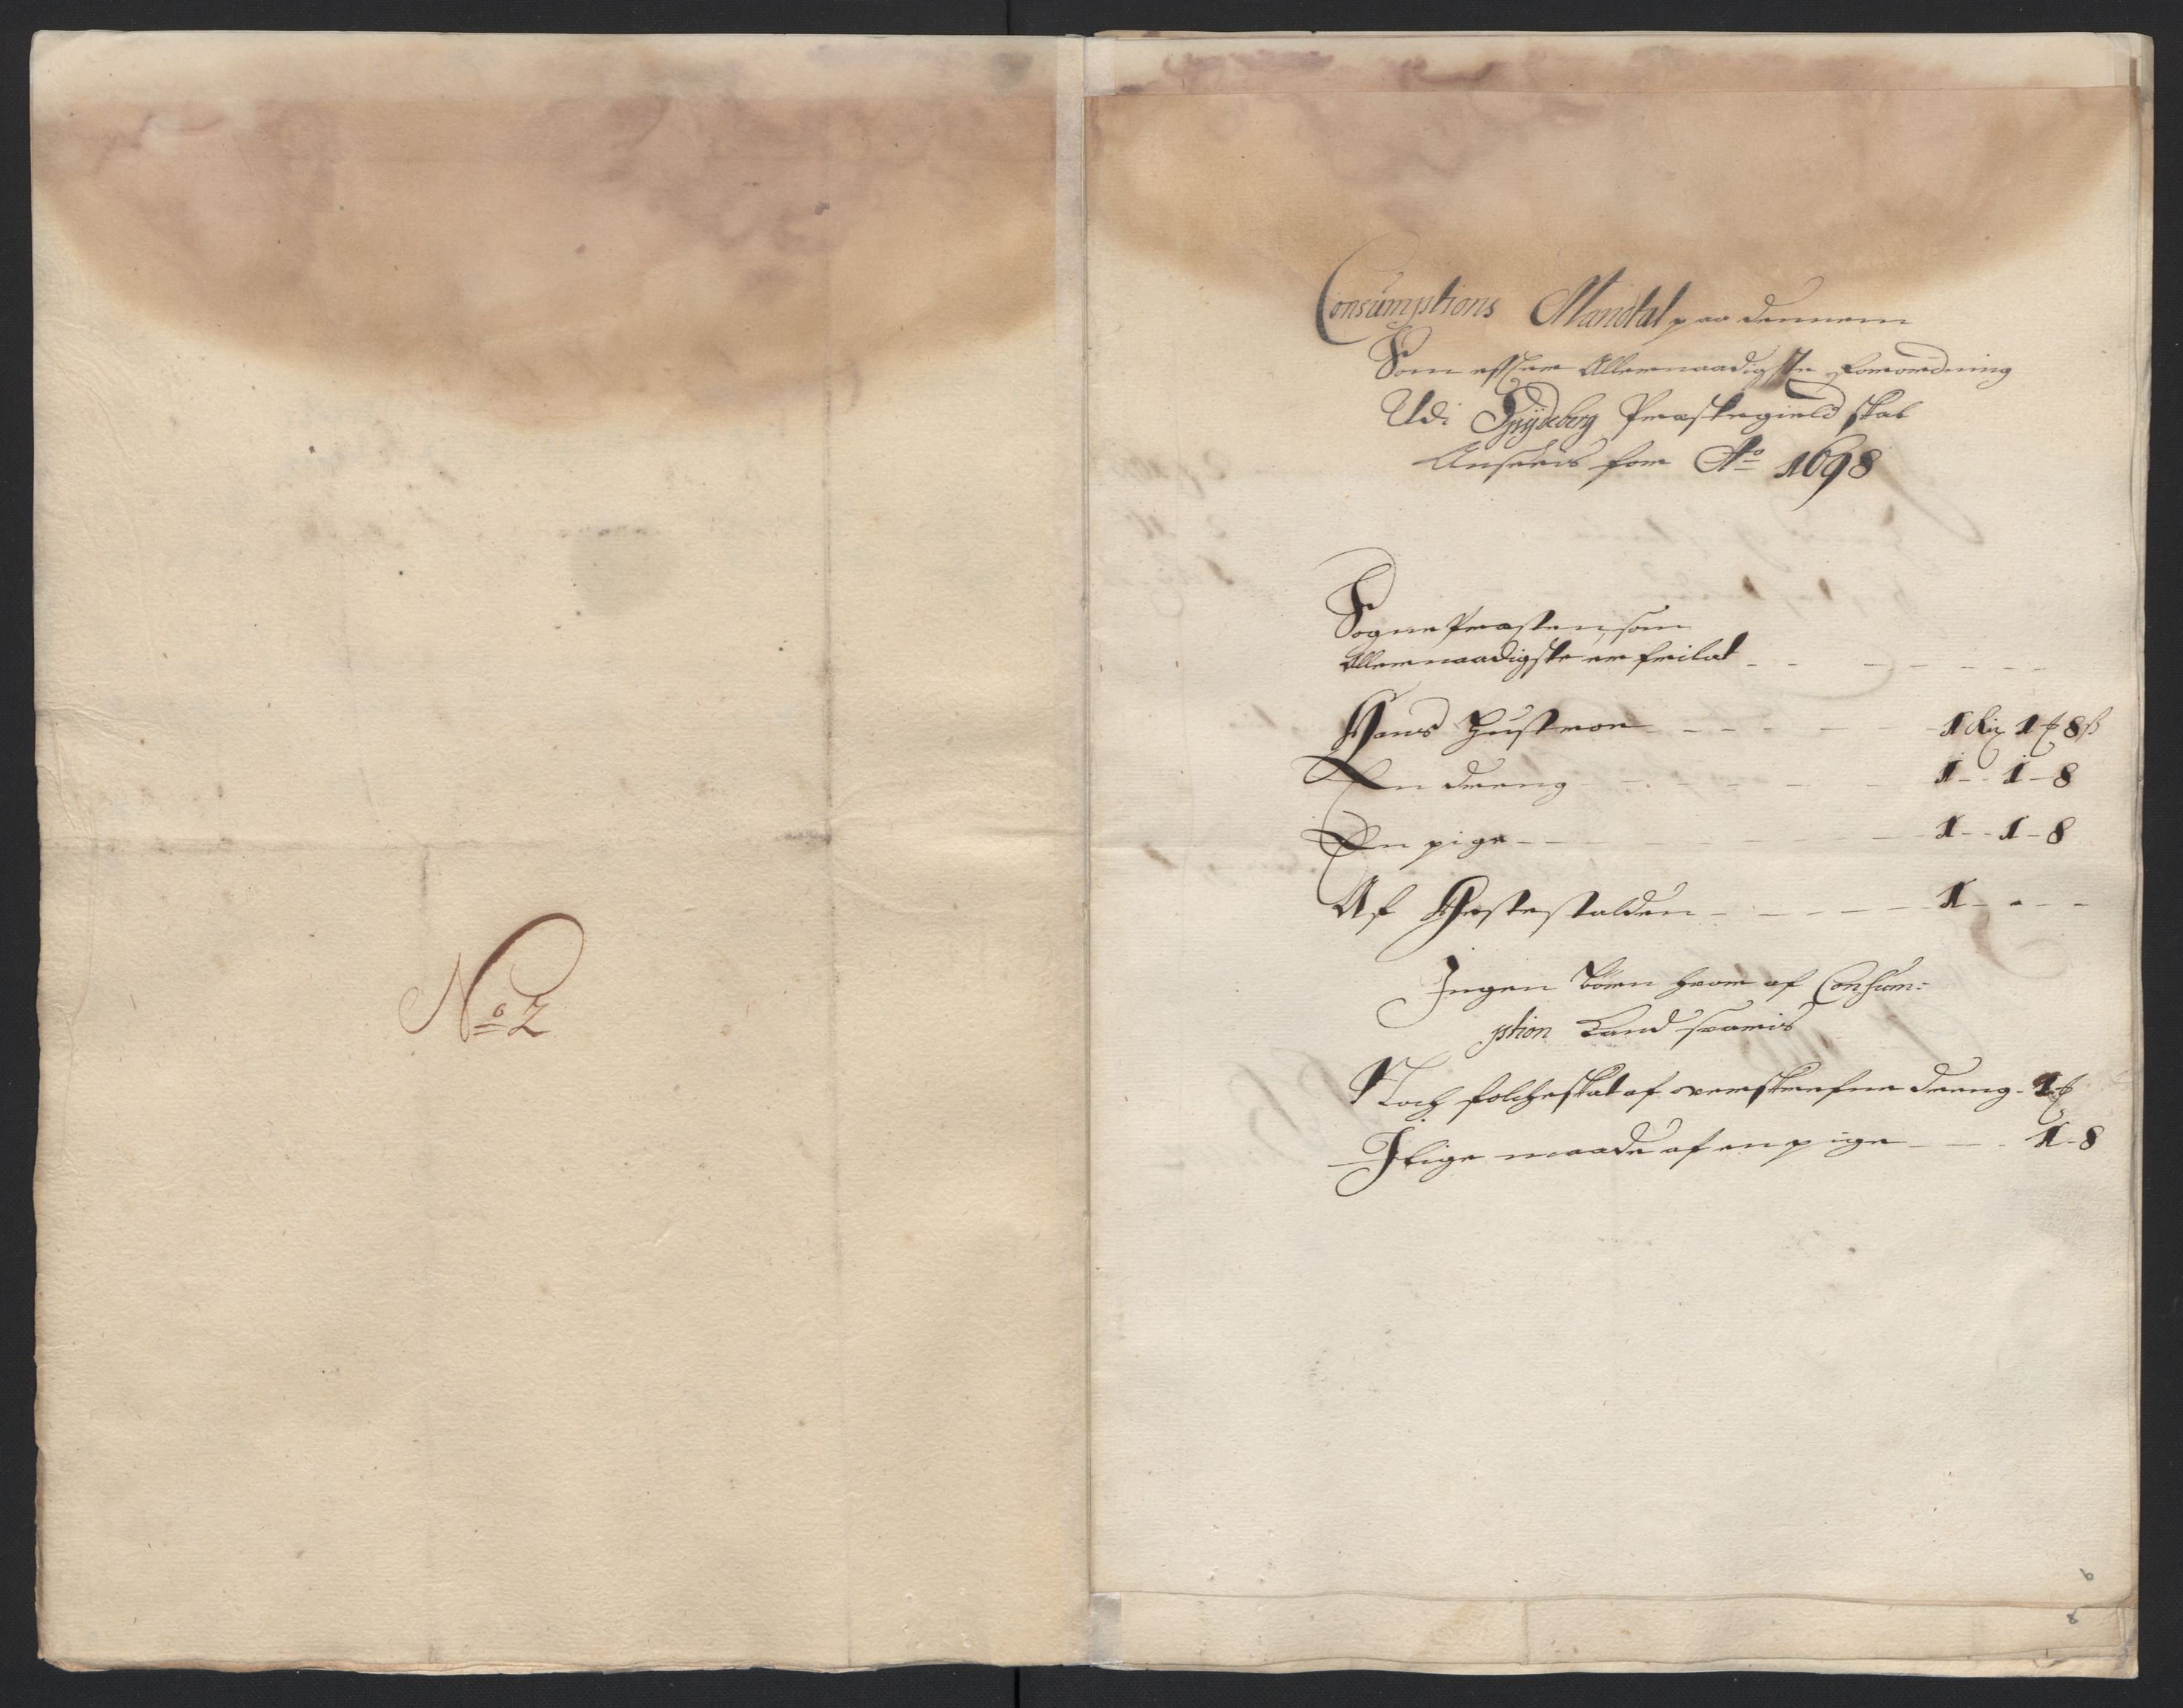 No 2
Consumptions Mandtal paa dennem
Som effter Allernaadigste forordning
Udi Spydeberg Præstegield skal
Ansees for Ao 1698
Sogne Præsten, som
Allernaadigste er frilat
Hans Hustroe 1 Rix 1 8 ß
En dreng 1 - 1 - 8
En pige 1 - 1 - 8
Af Hestestalden 1 - -
Ingen börn hvor af Consum-
ption Kand svaris
Noch folcheskat af overskrefne dreng - 1
I lige maade af en pige 1 - 8
9
8